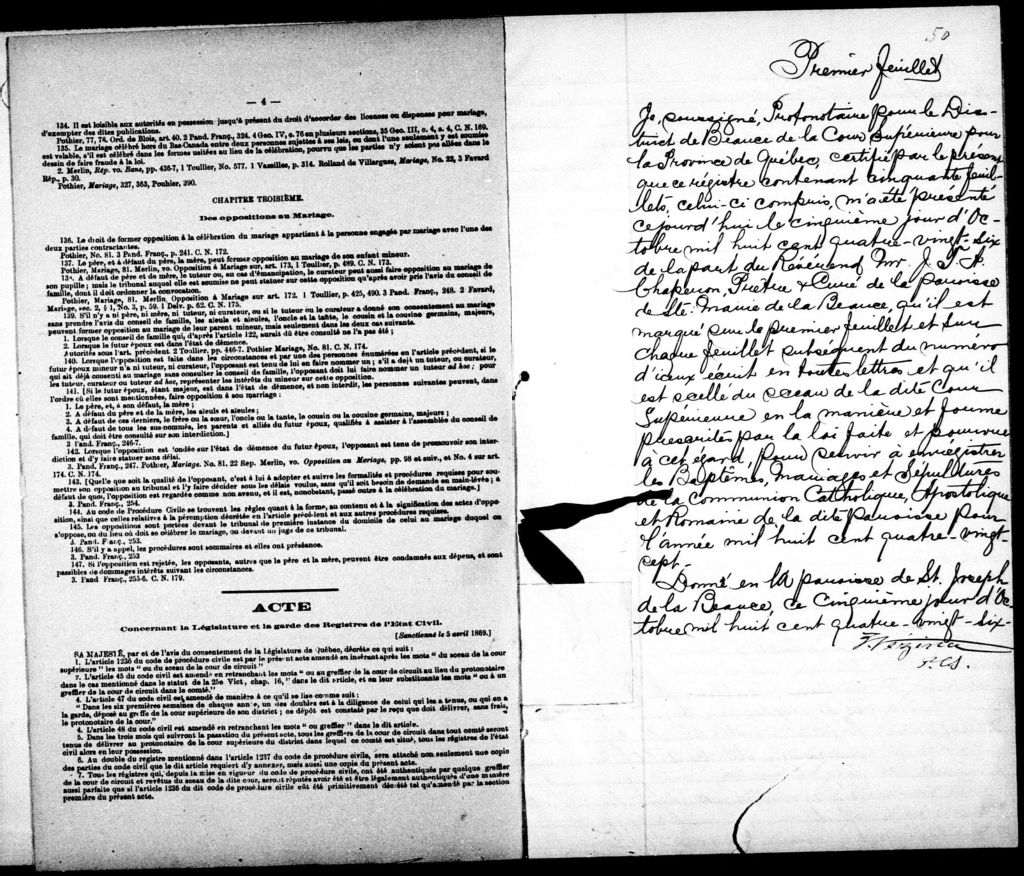 — 4 —
134. Il est loisible aux autorités en possession jusqu'à présent du droit d'accorder des licences ou dispenses pour mariage,
d'exempter des dites publications.
Pothier, 77, 78. Ord. de Blois, art. 40. 2 Pand. Franç., 324. 4 Geo. IV, c. 76 en plusieurs sections, 35 Geo. III, c. 4, s. 4, C. N. 169.
135. Le mariage célébré hors du Bas-Canada entre deux personnes sujettes à ses lois, ou dont l'une seulement y est soumise
est valable, s'il est célébré dans les formes usitées au lieu de la célébration, pourvu que les parties n'y soient pas allées dans le
dessin de faire fraude à la loi.
2. Merlin, Rép. vo. Bans, pp. 436-7, 1 Toullier, No. 577. 1 Vazeilles, p. 314. Rolland de Villargues, Mariage, No. 32, 3 Favard
Rép., p. 30.
Pothier, Mariage, 327, 363, Pouhier, 390.
CHAPITRE TROISIÈME.
Des oppositions au Mariage.
136. Le droit de former opposition à la célébration du mariage appartient à la personne engagée par mariage avec l'une des
deux parties contractantes.
Pothier, No. 81. 3 Pand. Franç., p. 241. C. N. 172.
137. Le père, et à défaut du père, la mère, peut former opposition au mariage de son enfant mineur.
Pothier, Mariage, 81. Merlin, vo. Opposition à Mariage sur, art. 173, 1 Toullier, p. 489. C. N. 173.
13. A défaut de père et de mère, le tuteur ou, au cas d'émancipation, le curateur peut aussi faire opposition au mariage de
son pupille; mais le tribunal auquel elle est soumise ne peut statuer sur cette opposition qu'après avoir pris l'avis du conseil de
famille, dont il doit ordonner la convocation.
Pothier, Mariage, 81. Merlin, Opposition à Mariage sur art. 172. 1 Toullier, p. 425, 490. 3 Pand. Franç., 248. 2 Favard,
Mariage, sec. 2, § 1, No. 3, p. 59. 1 Delv. p. 62. C. N. 175.
139. S'il n'y a ni père, ni mère, ni tuteur, ni curateur, ou si le tuteur ou le curateur a donné son consentement au mariage
sans prendre l'avis du conseil de famille, les aïeuls et aïeules, l'oncle et la tante, le cousin et la cousine germains, majeurs,
peuvent former opposition au mariage de leur parent mineur, mais seulement dans les deux cas suivants.
1. Lorsque le conseil de famille qui, d'après l'article 122, aurait dû être consulté ne l'a pas été;
2. Lorsque le futur époux est dans l'état de démence.
Autorités sous l'art. précédent. 2 Toullier. pp. 446-7. Pothier Mariage, No. 81. C. N. 174.
140. Lorsque l'opposition est faite dans les circonstances et par une des personnes énumérées en l'article précédent, si le
futur époux mineur n'a ni tuteur, ni curateur, l'opposant est tenu de lui en faire nommer un; s'il a déjà un tuteur, ou curateur,
qui ait déjà consenti au mariage sans consulter le conseil de famille, l'opposant doit lui faire nommer un tuteur ad hoc; pour
les tuteur, curateur ou tuteur ad hoc, représenter les intérêts du mineur sur cette opposition.
141. [Si le futur époux, étant majeur, est dans l'état de démence, et non interdit, les personnes suivantes peuvent, dans
l'ordre où elles sont mentionnées, faire opposition à son mariage:
1. Le père, et, à son défaut, la mère;
2. A défaut du père et de la mère, les aïeuls et aïeules;
3. A défaut de ces derniers, le frère ou la sœur, l'oncle ou la tante, le cousin ou la cousine germains, majeurs;
4. A défaut de tous les sus-nommés, les parents et alliés du futur époux, qualifiés à assister à l'assemblée du conseil de
famille, qui doit être consulté sur son interdiction.]
3 Pand. Franç., 246-7.
142. Lorsque l'opposition est fondée sur l'état de démence du futur époux, l'opposant est tenu de promouvoir son inter-
diction et d'y faire statuer sans délai.
3. Pand. Franç., 247. Pothier, Mariage. No. 81, 22 Rep. Merlin, vo. Opposition au Mariage, pp. 98 et suiv., et No. 4 sur art.
174. C. N. 174.
143. [Quelle que soit la qualité de l'opposant, c'est à lui à adopter et suivre les formalités et procédures requises pour sou-
mettre son opposition au tribunal et l'y faire décider sous les délais voulus, sans qu'il soit besoin de demande en main-levée; à
défaut de quoi, l'opposition est regardée comme non avenue, et il est, nonobstant, passé outre à la célébration du mariage.]
3. Pand. Franç., 254.
144. Au code de Procédure Civile se trouvent les règles quant à la forme, au contenu et à la signification des actes d'oppo-
sition, ainsi que celles relatives à la péremption décrétée en l'article précédent et aux autres procédures requises.
145. Les oppositions sont portées devant le tribunal de première instance du domicile de celui au mariage duquel on
s'oppose, ou du lieu où doit se célébrer le mariage, ou devant un juge de ce tribunal.
3. Pand. Franç., 253.
146. S'il y a appel, les procédures sont sommaires et elles ont préséance.
3. Pand. Franç., 253
147. Si l'opposition est rejetée, les opposants, autres que le père et la mère, peuvent être condamnés aux dépens, et sont
passibles de dommages intérêts suivant les circonstances.
3. Pand Franç., 255-6. C. N. 179.
ACTE
Concernant la Législature et la garde des Registres de l'Etat Civil.
[Sanctionné le 5 avril 1869.]
SA MAJESTÉ, par et de l'avis du consentement de la Législature de Québec, décrète ce qui suit:
1. L'article 1236 du code de procédure civile est par le présent acte amendé en insérant après les mots "du sceau de la cour
supérieure" les mots "ou du sceau de la cour de circuit"
7. L'article 45 du code civil est amendé en retranchant les mots "ou au greffier de la cour de circuit au lieu du protonotaire
dans le cas mentionné dans le statut de la 25e Vict, chap. 16," dans le dit article, et en leur substituants les mots "ou à un
greffier de la cour de circuit dans le comté."
4. L'article 47 du code civil est amendé de manière à ce qu'il se lise comme suit:
"Dans les six premières semaines de chaque année, un des doubles est à la diligence de celui qui les a tenus, ou qui en a
la garde, déposé au greffe de la cour supérieure de son district; ce dépôt est constaté par le reçu que doit délivrer, sans frais,
le protonotaire de la cour."
4. L'article 48 du code civil est amendé en retranchant les mots "ou greffier" dans le dit article.
5. Dans les trois mois qui suivront la passation du présent acte, tous les greffiers de la cour de circuit dans tout comté seront
tenus de délivrer au protonotaire de la cour supérieure du district dans lequel ce comté est situé, tous les régistres de l'état
civil alors en leur possession.
6. Au double du registre mentionné dans l'article 1237 du code de procédure civile, sera attaché non seulement une copie
des parties du code civil que le dit article requiert d'y annexer, mais aussi une copie du présent acte.
7. Tous les régistres qui, depuis la mise en vigueur du code de procédure civile, ont été authentiqués par quelque greffier
de la cour de circuit et revêtus du sceau de la dite cour, seront réputés avoir été et être légalement authentiqués d'une manière
aussi parfaite que si l'article 1236 du dit code de procédure civile eût été primitivement décrété tel qu'amendé par la section
première du présent acte.
50
Premier feuillet
Je, soussigné, Protonotaire pour le Dis-
trict de Beauce de la Cour Supérieure pour
la Province de Québec, certifie par le présent
que ce régistre contenant cinquante feuil-
lets, celui-ci compris, m'a été présenté
ce jour d'hui le cinquième jour d'Oc-
tobre mil huit cent quatre-vingt-six
de la part du Révérend Mr. J. T. A.
Chaperon, Prêtre & Curé de la paroisse
de Ste. Marie de la Beauce, qu'il est
marqué sur le premier feuillet et sur
chaque feuillet subséquent du numéro
d'iceux écrit en toutes lettres et qu'il
est scellé du sceau de la dite Cour
Supérieure en la manière et forme
prescrites par la loi faite et pourvue
à cet égard, pour servir à enrégistrer
les Baptêmes, Mariages et Sépultures
de la Communion Catholique, Apostolique
et Romaine de la dite paroisse pour
l'année mil huit cent quatre-vingt-
sept.
Donné en la paroisse de St. Joseph
de la Beauce, ce Cinquième jour d'Oc-
tobre mil huit cent quatre-vingt-six-
P.C.S.